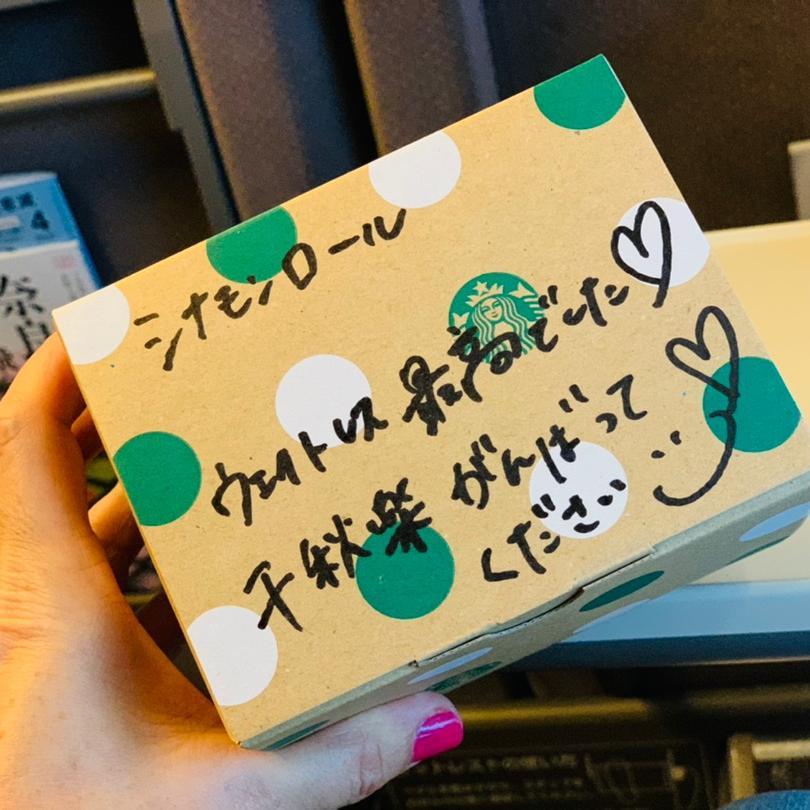 シナモンロール
ウェイトレス 最高でした♡
千秋楽 がんばって
ください
奈良
4